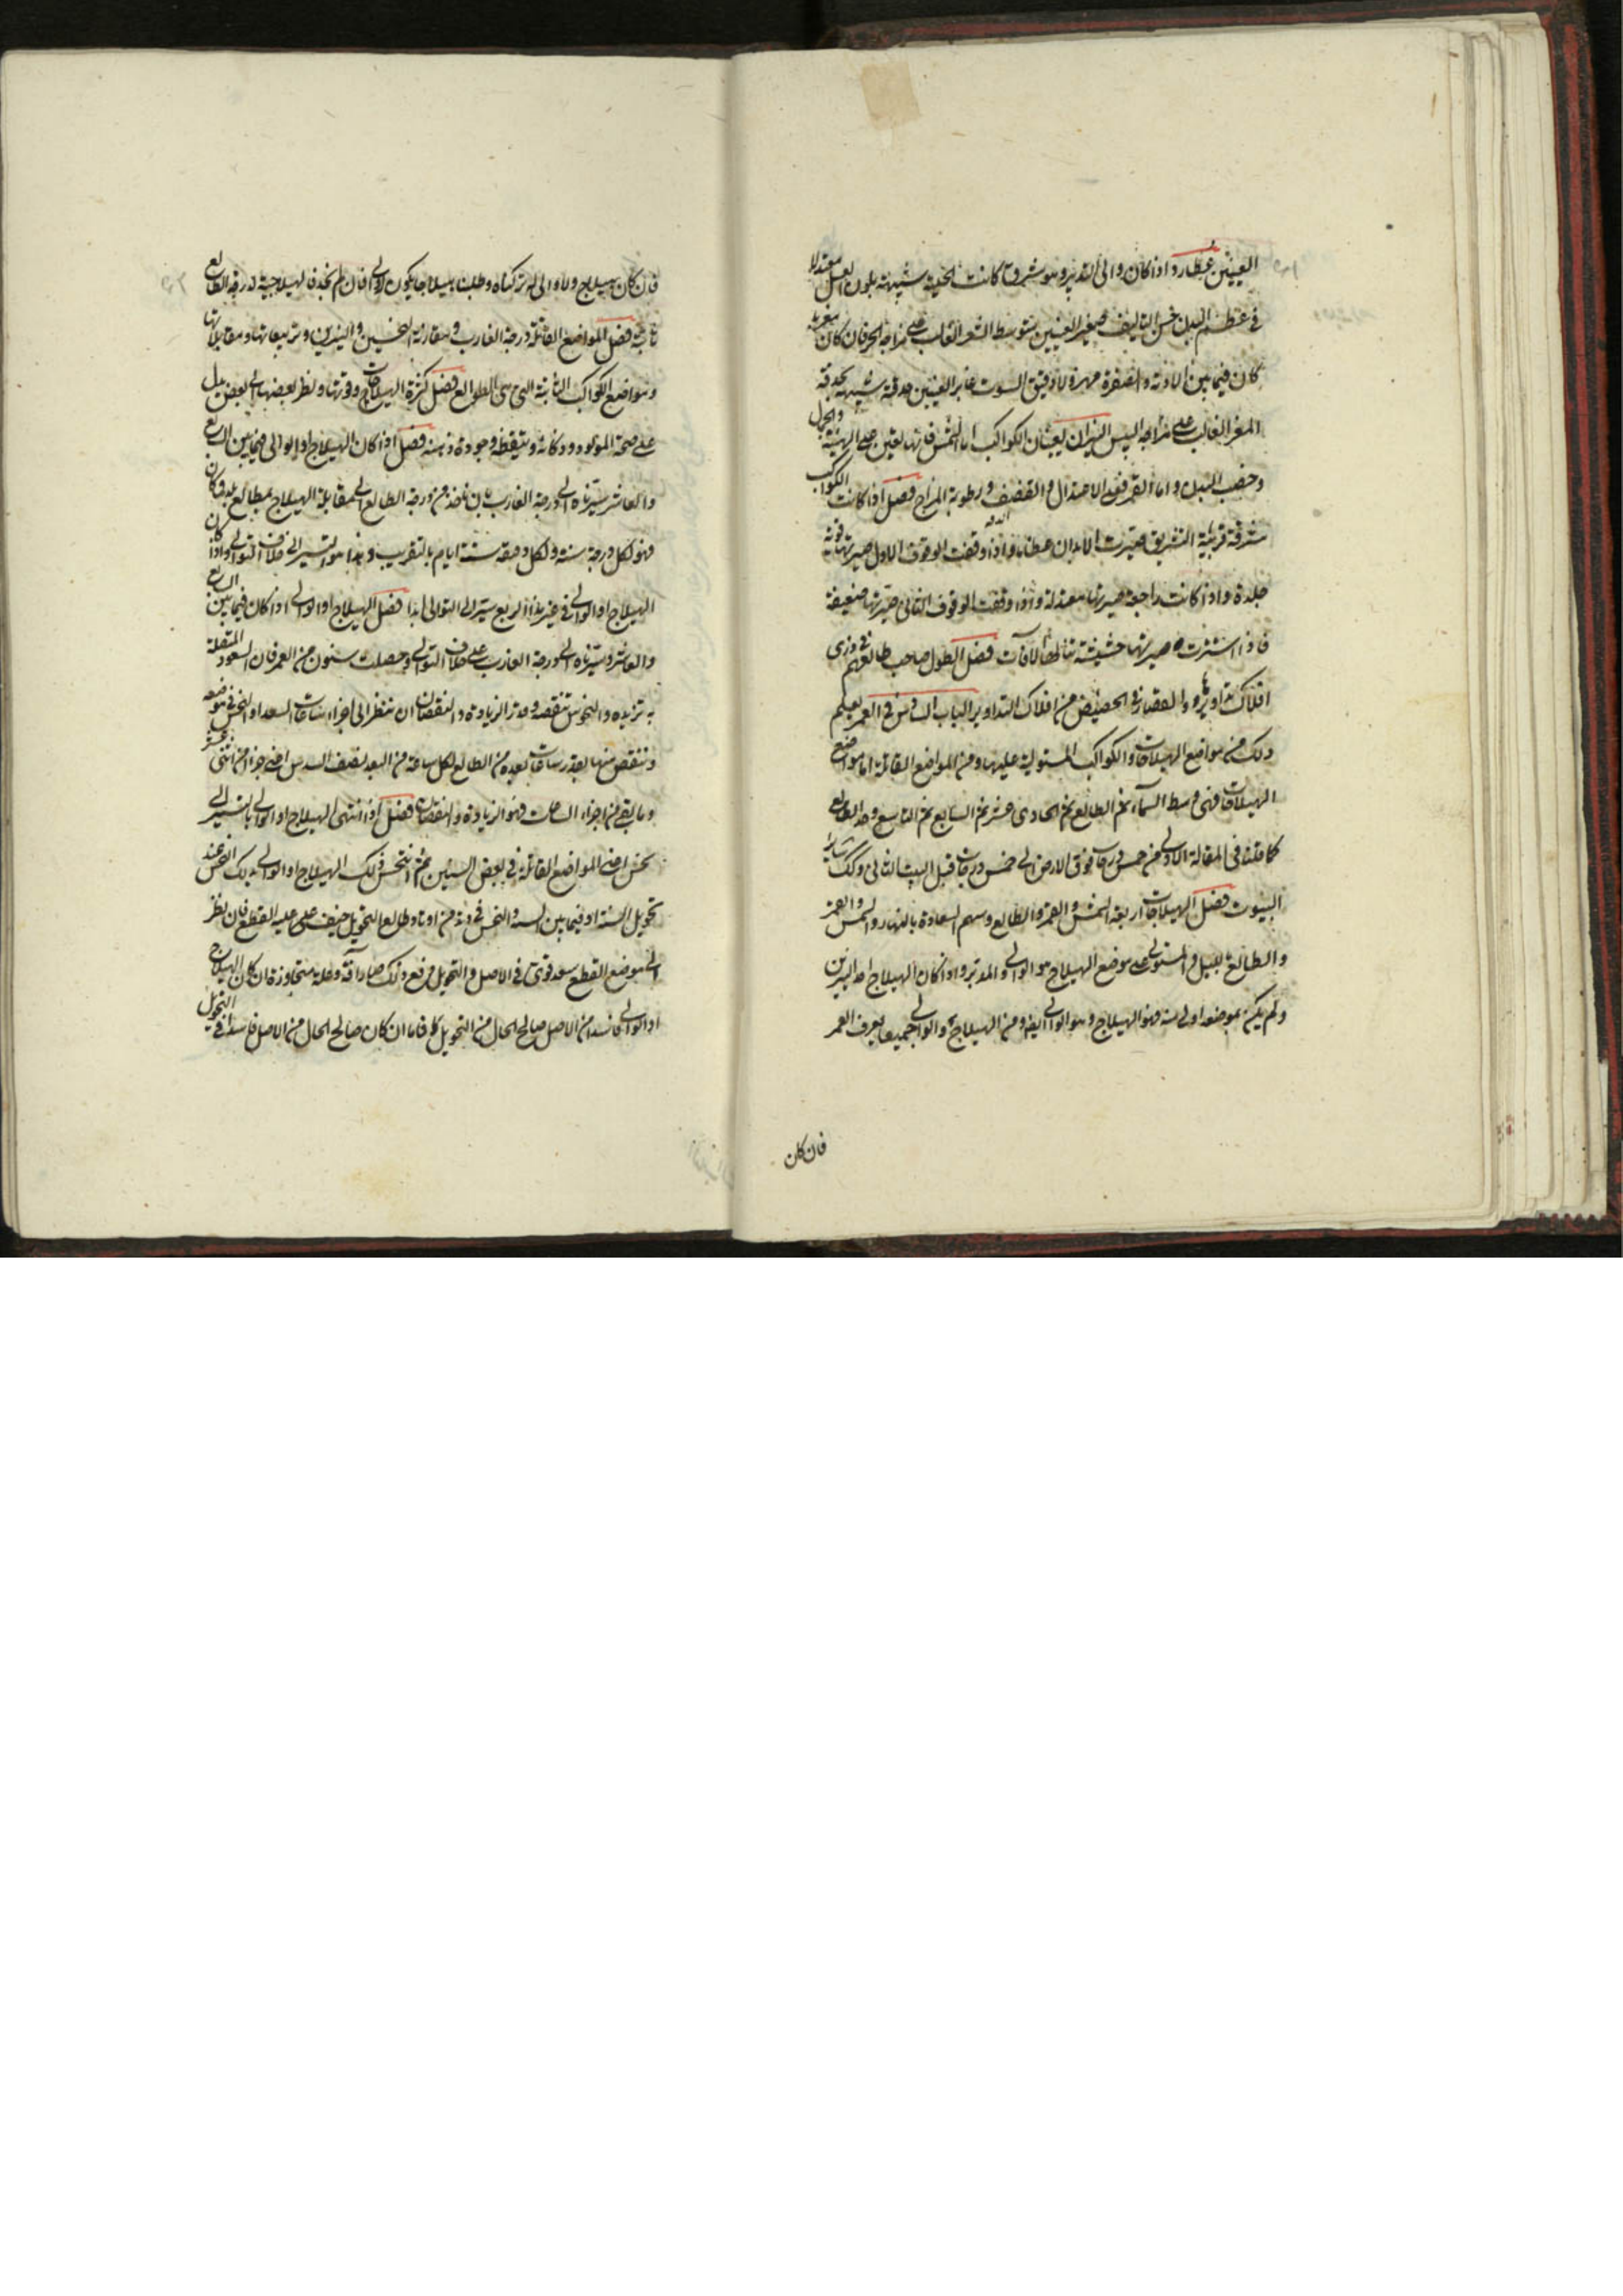 العينين عطارد اذا كان والى التدبير وهو مشرق كانت لحيته شبيهة بلون العسل معتدلا
في عظم البدن حسن التاليف صغير العينين متوسط الشعر الغالب على مزاجه الحر فان كان مغربا
كان فيما بين الادمة والصفرة مهزولا دقيق الصوت غاير العينين حدقته شبيهة بحدقة
المعز الغالب على مزاجه اليبس النيران يعينان الكواكب اما الشمس فانها تعين على الهيئة والجمال
وخصب البدن واما القمر فعلى الاعتدال والقضف ورطوبة المزاج فصل اذا كانت الكواكب
مشرقة قريبة التشريق صيرت الابدان عظيمة واذا وقفت الوقوف الاول صيرتها قوية
جلدة واذا كانت راجعة صيرتها معتدلة واذا وقفت الوقوف الثانى صيرتها ضعيفة
فاذا استترت صيرتها خسيسة تنالها الآفات فصل الطول صاحب طالعهم في ذرى
افلاك تداويرها والقصار في الحضيض من افلاك التداوير الباب السادس في العمر يعلم
ذلك من مواضع الهيلاجات والكواكب المستولية عليها ومن المواضع القاتلة اما مواضع
الهيلاجات فهى وسط السماء ثم الطالع ثم الحادى عشر ثم السابع ثم التاسع وحد الطالع
كما قلنا فى المقالة الاولى من خمس درجات فوق الارض الى خمس درجات قبل البيت الثانى وكذلك سائر
البيوت فصل الهيلاجات اربعة الشمس والقمر والطالع وسهم السعادة بالنهار والشمس والقمر
والطالع بالليل والمستولى على موضع الهيلاج هو الوالى والمدبر واذا كان الهيلاج احد النيرين
ولم يكن بموضعه اولى منه فهو الهيلاج وهو الوالى ايضا ومن الهيلاج والوالى جميعا يعرف العمر
فان كان
فان كان هيلاج ولا والى له تركناه وطلبنا هيلاجا يكون له والى فان لم نجد فالهيلاجية لدرجة الطالع
ثابتة فصل المواضع القاتلة درجة الغارب ومقارنة النحسين والنيرين وتربيعاتها ومقابلاتها
ومواضع الكواكب الثابتة التى هى الطوالع فصل كثرة الهيلاجات وقوتها ونظر بعضها الى بعض يدل
على صحة المولود وذكائه وتيقظه وجودة ذهنه فصل اذا كان الهيلاج او الوالى فيما بين السابع
والعاشر سيرناه الى درجة الغارب بان ناخذ من درجة الطالع الى مقابلة الهيلاج بمطالع بلده فما كان
فهو لكل درجة سنة ولكل دقيقة ستة ايام بالتقريب وهذا هو التسيير الى خلاف التوالى واذا كان
الهيلاج او الوالى في غير هذا الربع سير الى التوالى ابدا فصل الهيلاج او الوالى اذا كان فيما بين السابع
والعاشر وسيرناه الى درجة الغارب على خلاف التوالى وحصلت سنون من العمر فان السعود المتصلة
به تزيده والنحوس تنقصه وقدر الزيادة والنقصان ان تنظر الى اجزاء ساعات السعد او النحس في موضعه
وتنقص منها بقدر ساعات بعده من الطالع لكل ساعة من البعد نصف السدس اعنى جزأ من اثنى عشر
وما بقى من اجزاء الساعات فهو الزيادة والنقصان فصل اذا انتهى الهيلاج او الوالى بالتسيير الى
نحس او من المواضع القاتلة في بعض السنين ثم انتحس ذلك الهيلاج او الوالى بذلك النحس عند
تحويل السنة او فيما بين السنة والنحس في وتد من اوتاد طالع التحويل خيف على عليه القطع فان نظر
الى موضع القطع سعد قوى في الاصل والتحويل دفع ذلك وصار آفة وعلة يتجاوزه فان كان الهيلاج
او الوالى فاسدا من الاصل صالح الحال من التحويل كان فاما ان كان صالح الحال من الاصل فاسدا في التحويل